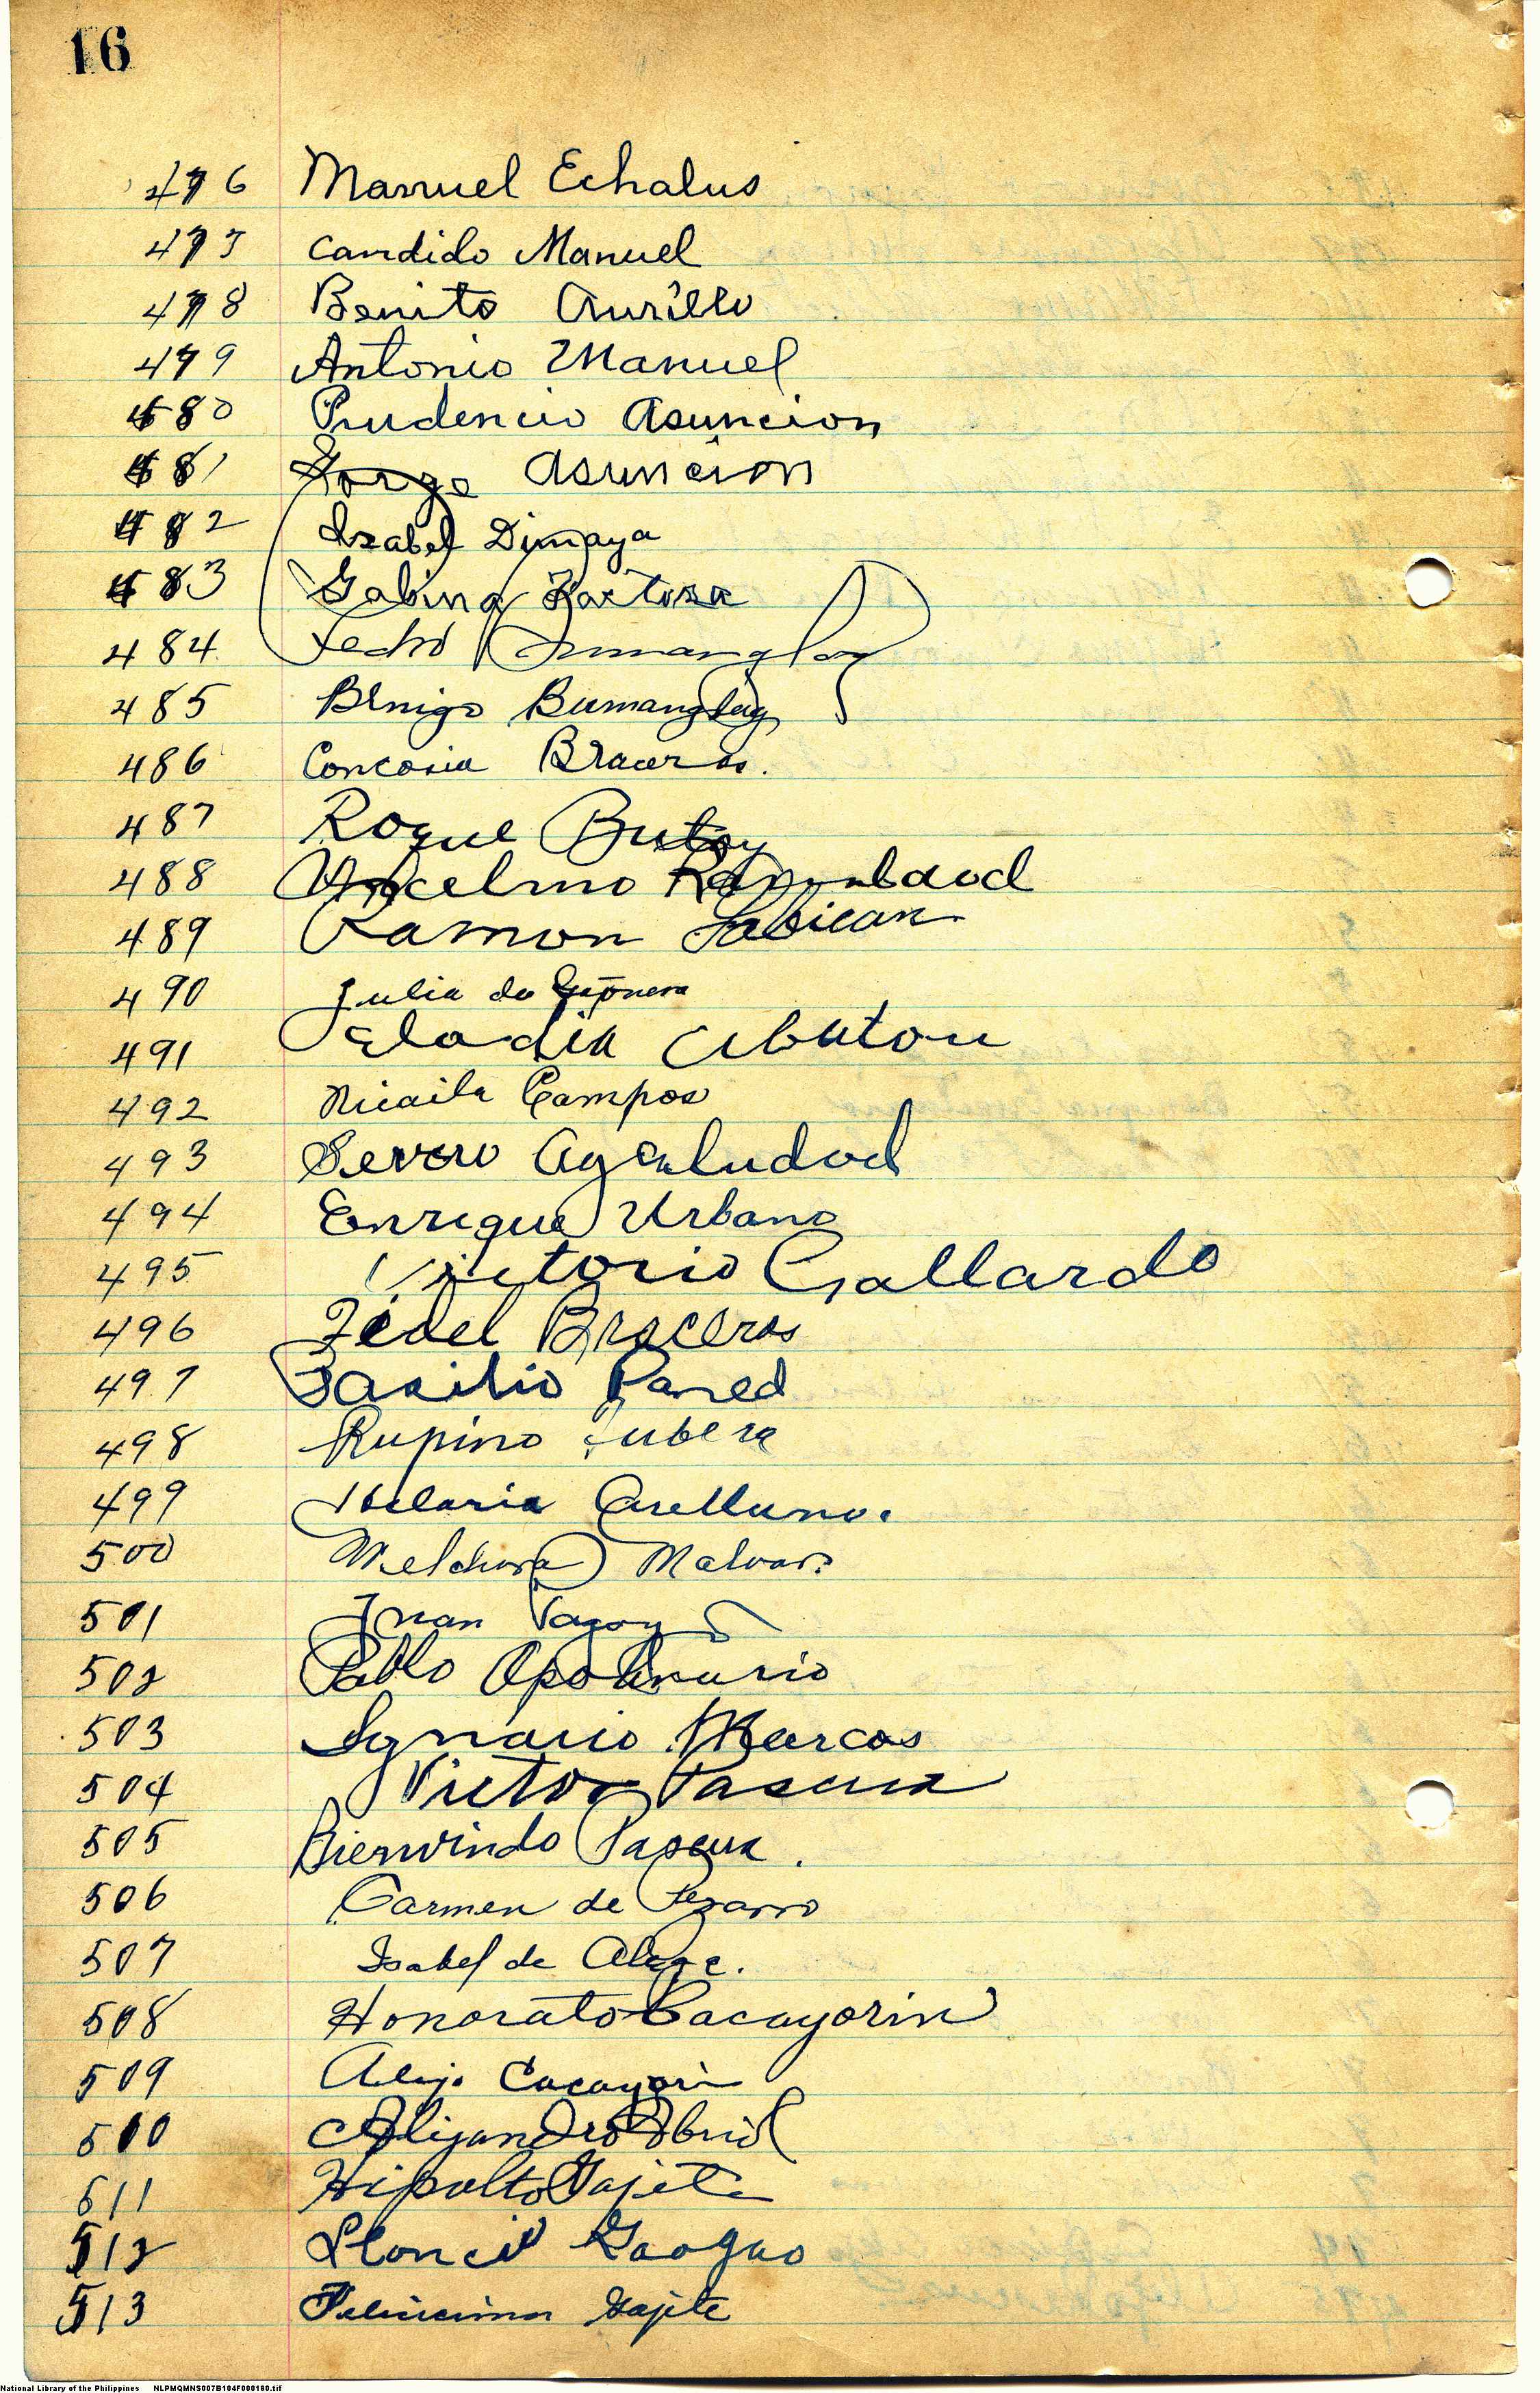 16
476 Manuel Echalus
477 Candido Manuel
478 Benito Aurillo
479 Antonio Manuel
480 Prudencio Asuncion
481 Jorge Asuncion
482 Isabel Dimaya
483 Gabina
484 Pedro Bumanglag
485 Benigo Bumanglag
486 Braceros.
487 Roque Butay
488 Ancelmo
489 Ramon Labican
490 Julia de
491 Eladia
492 Nicaila Campos
493 Severo Agaludud
494 Enrique Urbano
495 Victorio Gallardo
496 Fedel Braceros
497 Basilio Pared
498 Rupino Jubera
499 Helaria Arellano.
500 Melchora
501 Juan
502 Pablo Apolinario
503 Ignacio Marcos
504 Victor Pascua
505 Bienvindo Pascua.
506 Carmen de Pezarro
507 Isabel de
508 Honorato Cacayorin
509 Alijo Cacayorin
510 Alijandro Abril
511 Hipolto Gajete
512 Gaogao
513 Gajete
National Library of the Philippines NLPMQMNS007B104F000180.tif